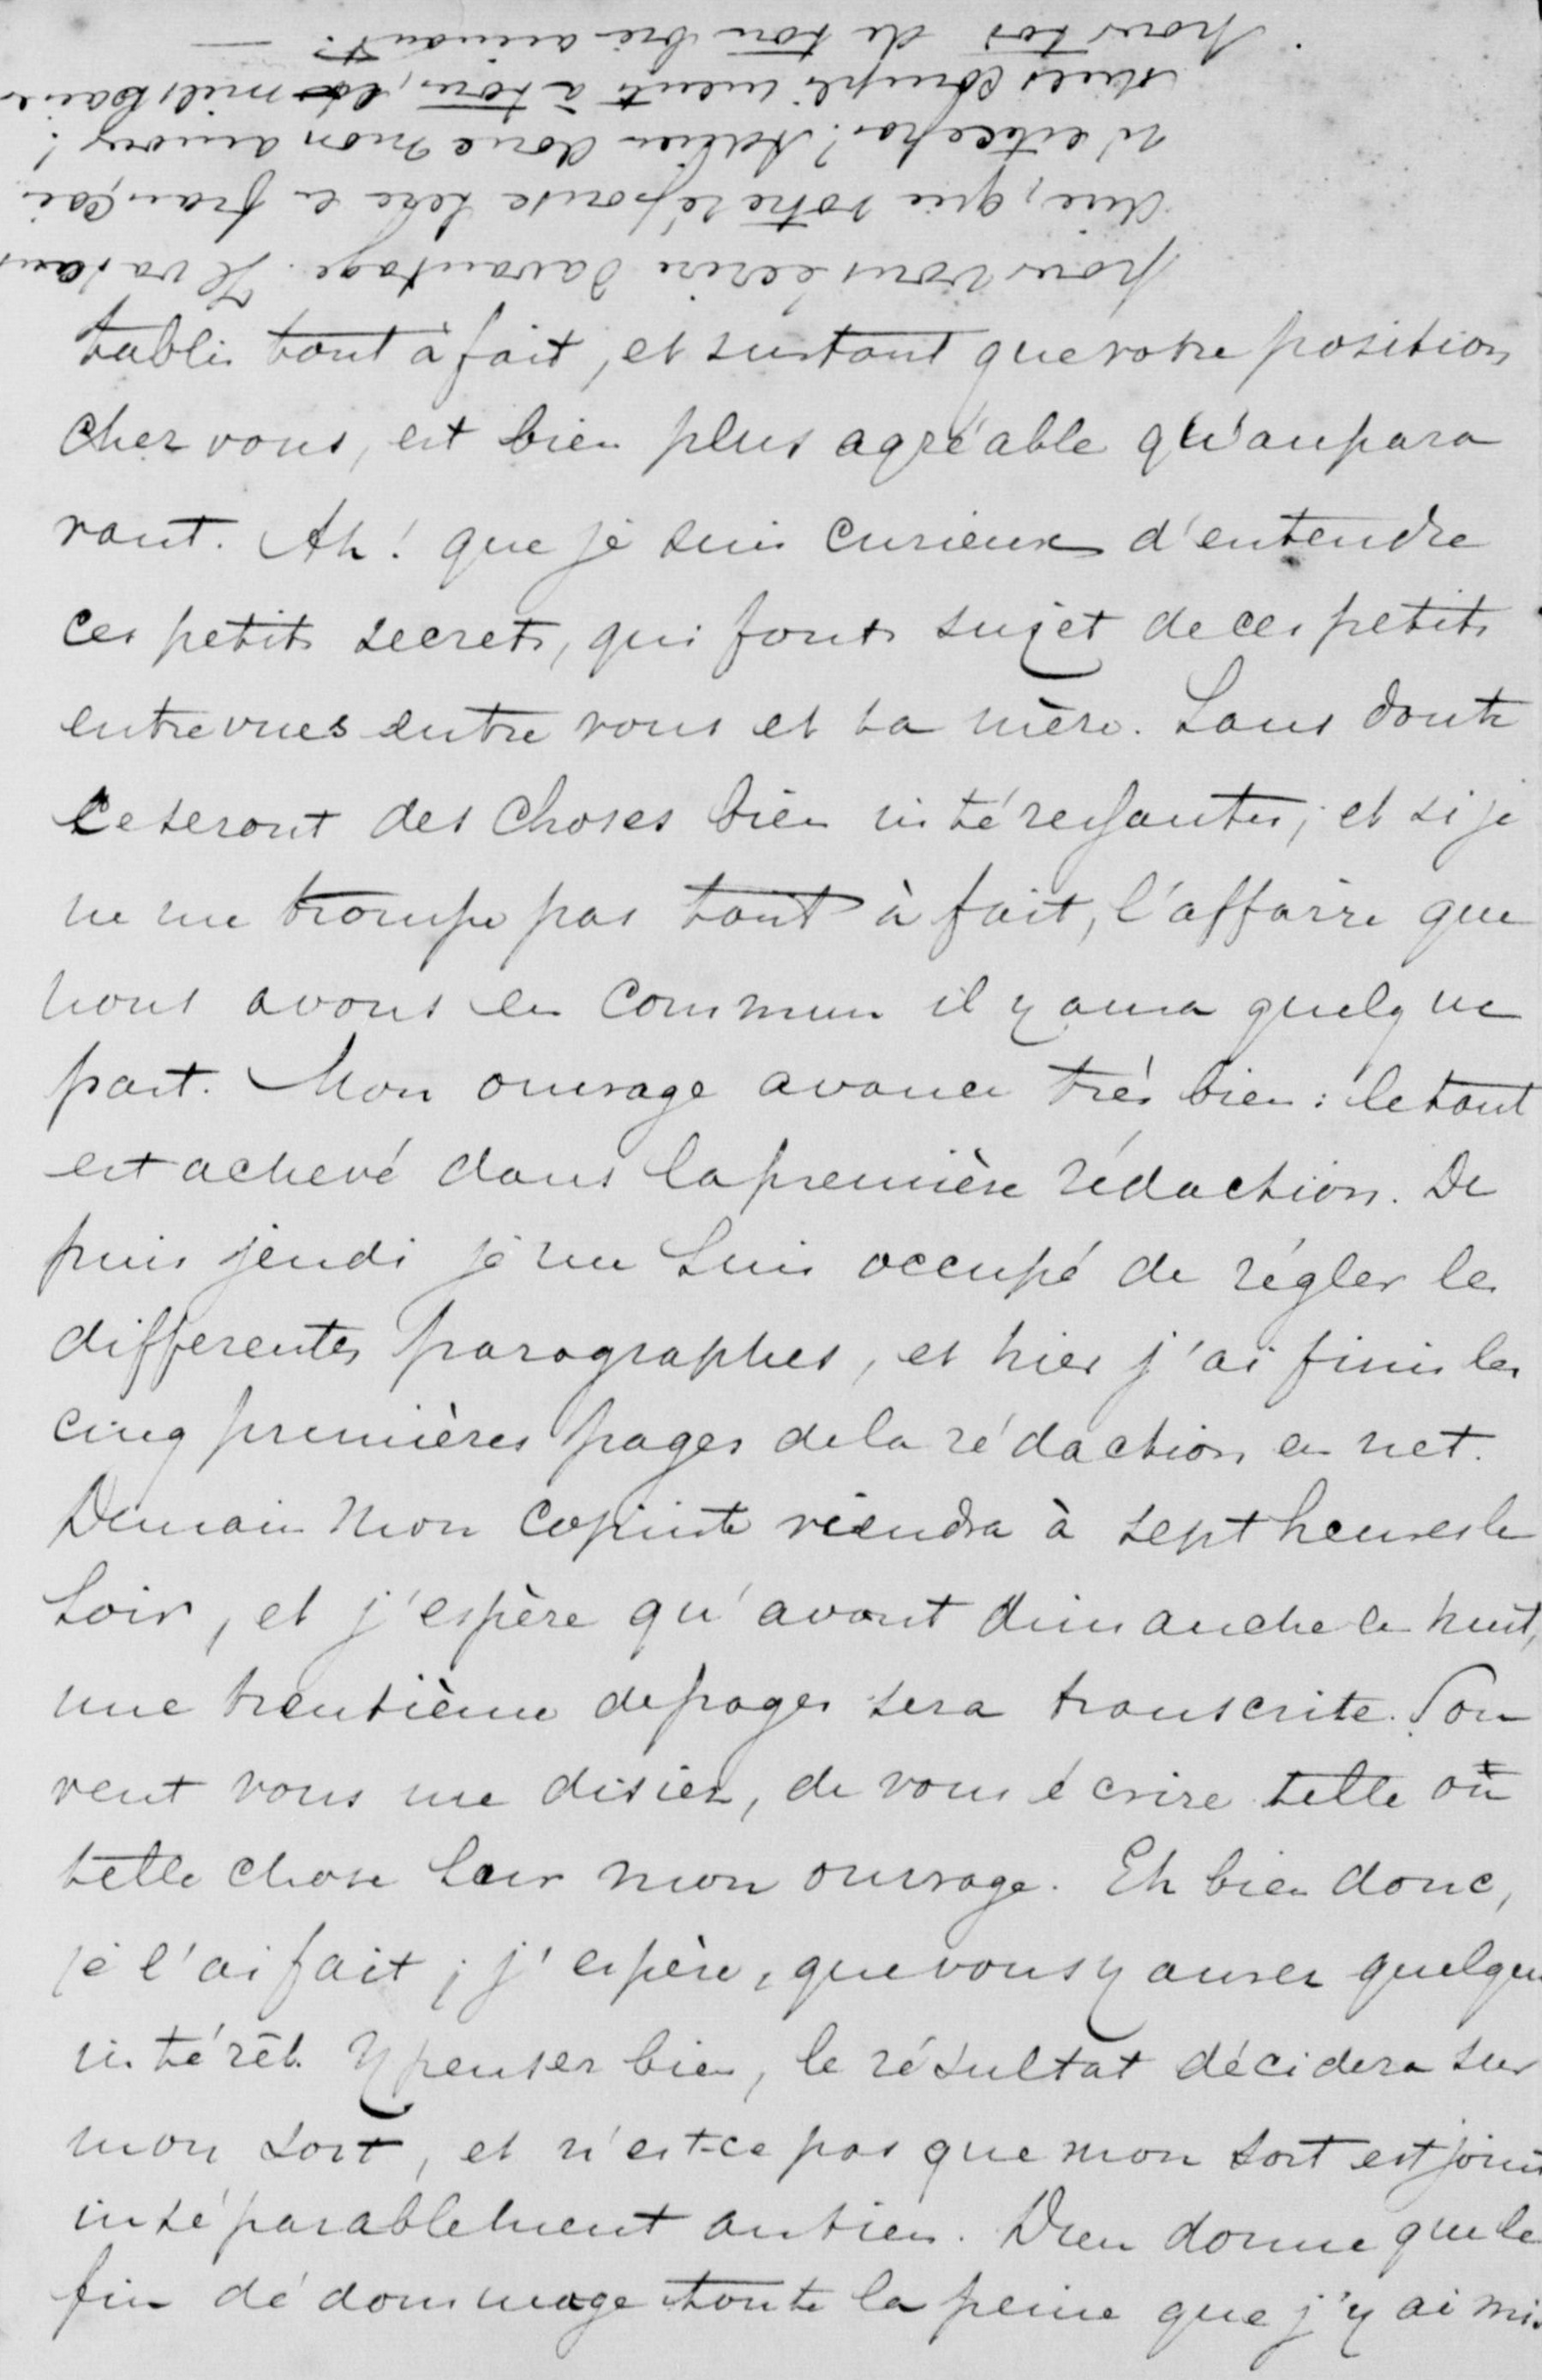 tablis tout à fait, et surtout que votre position
chez vous, est bien plus agréable qu'aupara
vant. Ah! que je suis curieux d'entendre
ces petits secrets, qui font sujet de ces petits
entrevues entre vous et ta mère. Sans doute
ce seront des choses bien intéressantes; et si je
ne me trompe pas tout à fait, l'affaire que
nous avons en commun il y aura quelque
part. Mon ouvrage avance très bien: le tout
est achevé dans la première rédaction. De
puis jeudi je me suis occupé de régler les
differentes paragraphes, et hier j'ai finis les
cinq premières pages de la rédaction en net.
Demain mon copiiste viendra à sept heures le
soir, et j'espère qu'avant dimanche en huit,
une trentième de pages sera transcrite. Sou
vent vous me disiez, de vous écrire telle où
telle chose sur mon ouvrage. Eh bien donc,
je l'ai fait; j'espère, que vous y aurez quelque
intérêt. Y penser bien, le résultat décidera sur
mon sort, et n'est-ce pas que mon sort est joint
inséparablement au tien. Dieu donne que le
fin dédommage toute la peine que j'y ai mis
pour vous écrire davantage. Il va sans
dire, que votre réponse sera en françois
n'est-ce pas? Adieu donc mon amour!
Mes compliments à tous, et mils baisers
pour toi de ton bie aimant. —